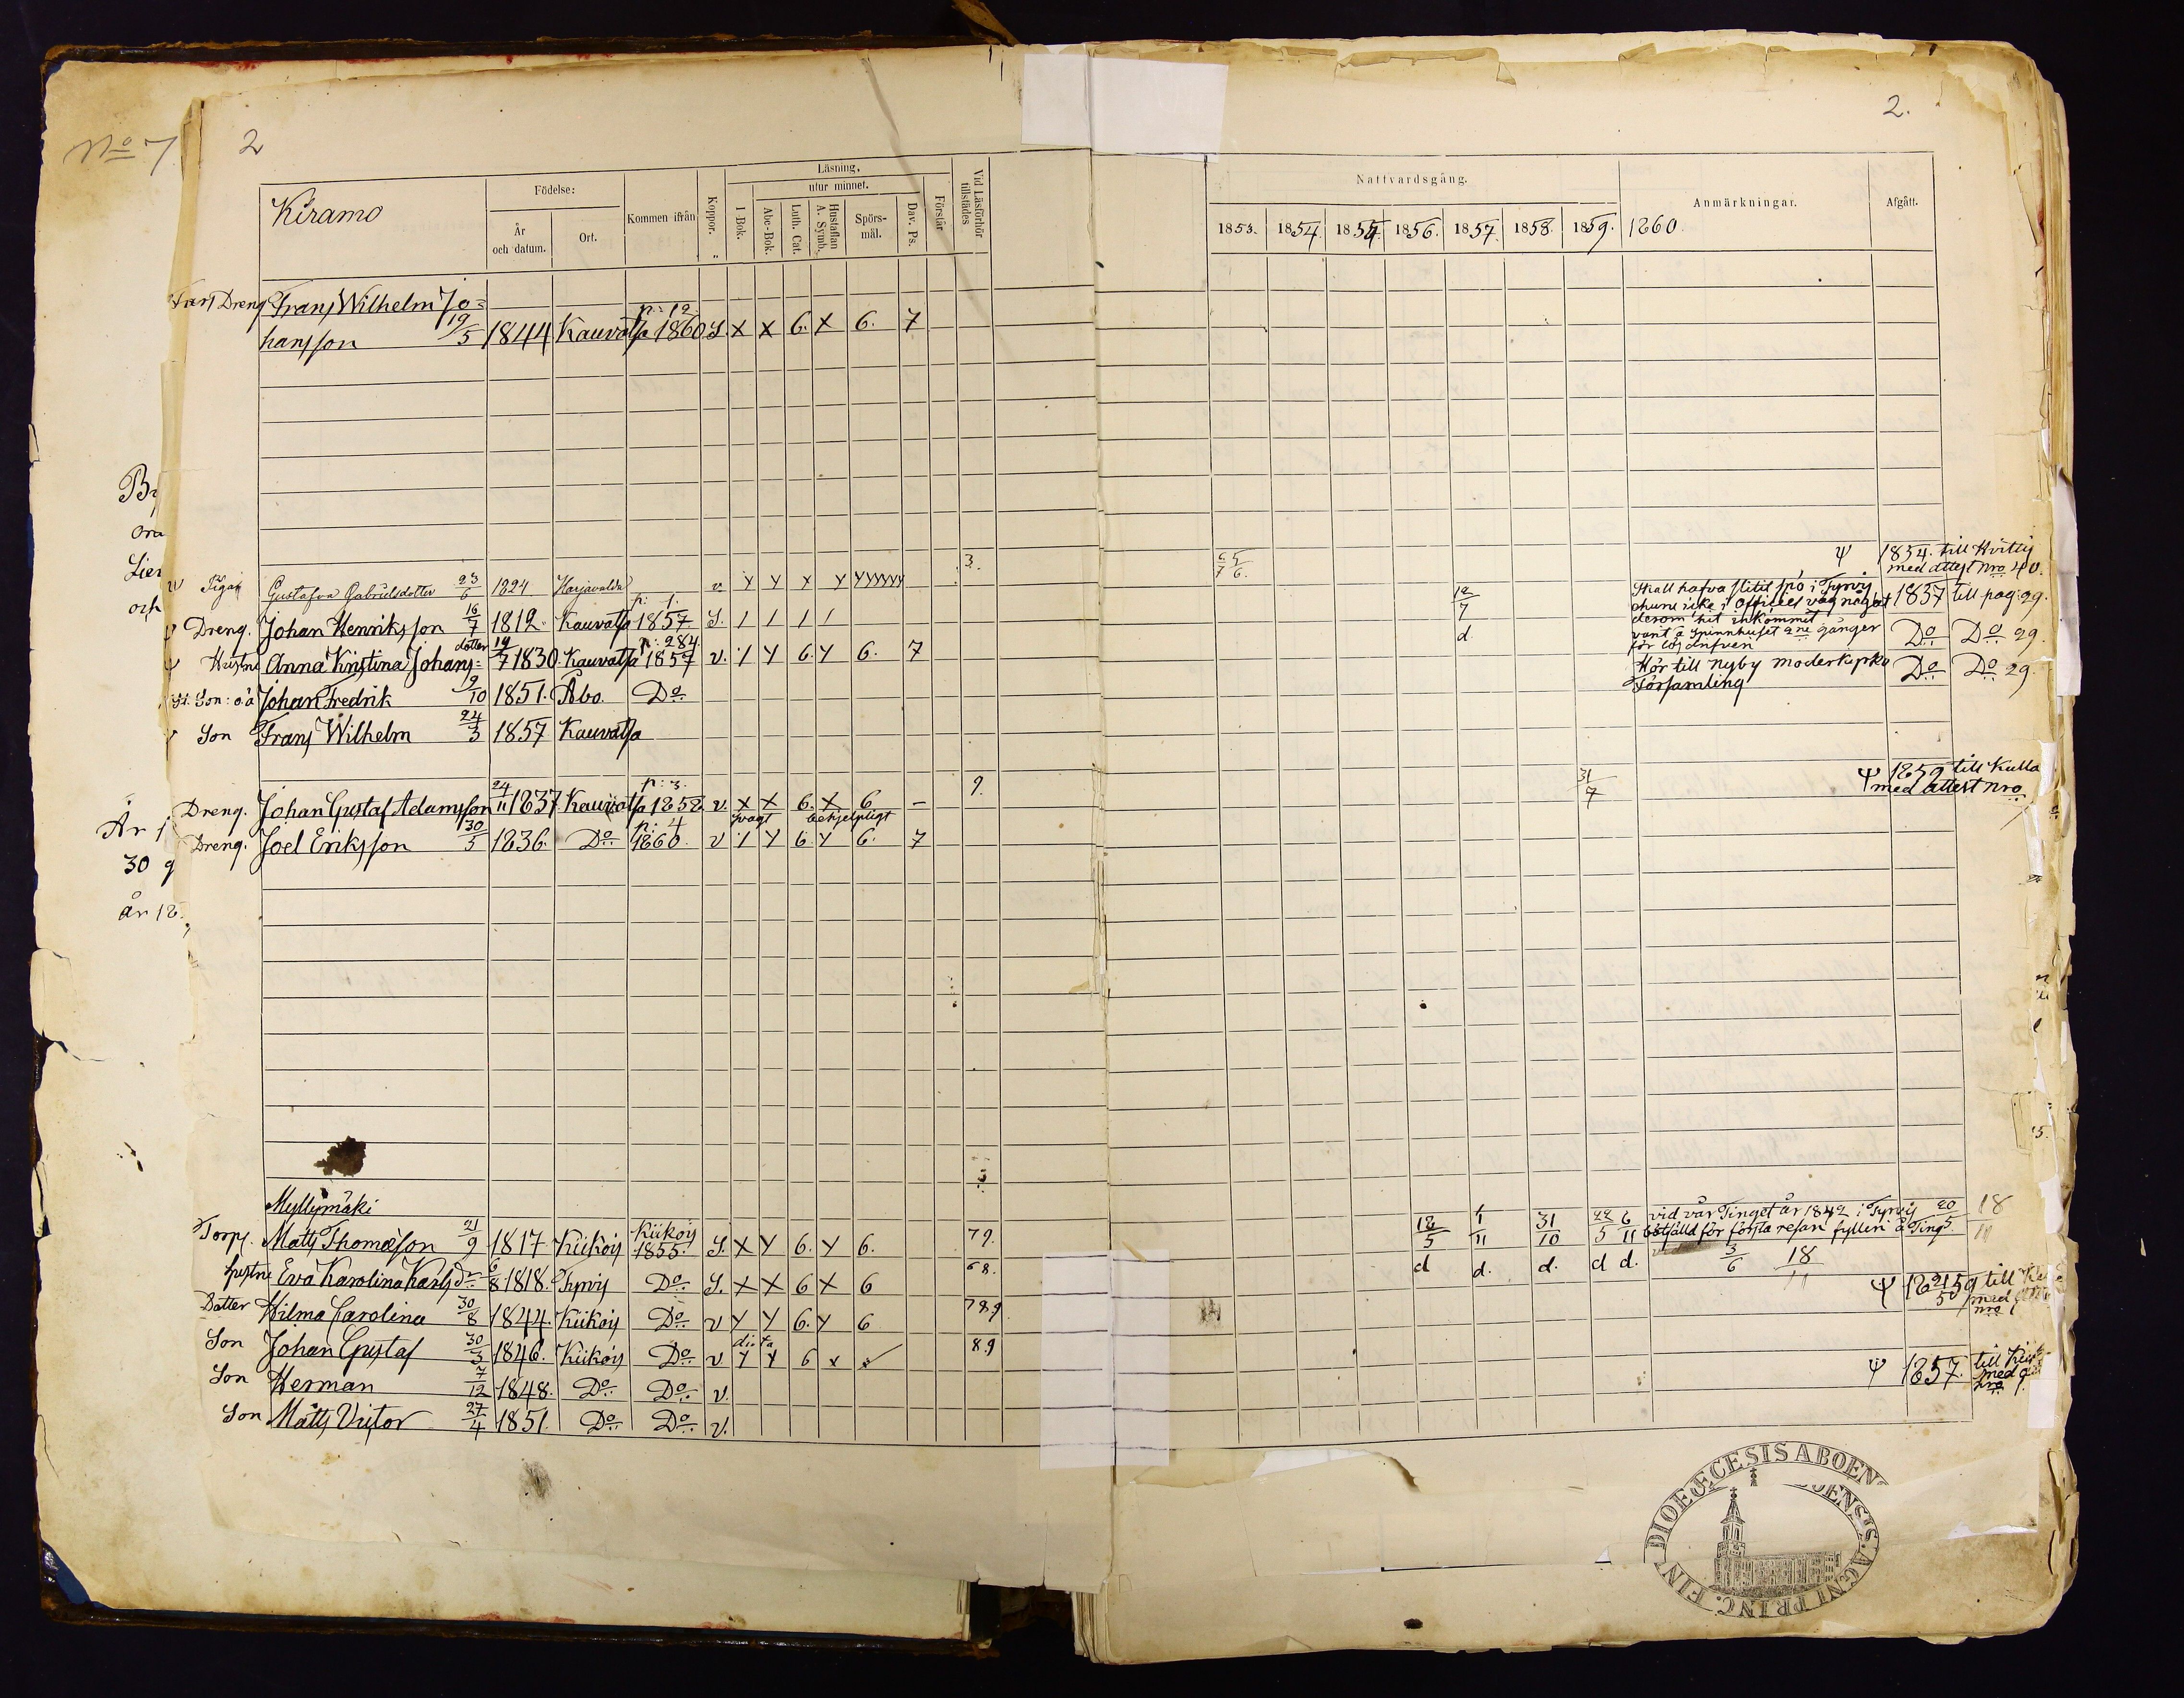 No 7
2
2.
Kiramo
Födelse:
År och datum.
Ort.
Kommen ifrån
Koppor.
Läsning,
utur minnet.
I Bok.
Abc-Bok.
Luth. Cat.
Hustaflan A. Symb.
Spörs-mål.
Dav. Ps.
Förstår
Vid Läsförhör tillstädes
Nattvardsgång.
1853. 1854. 1855. 1856. 1857. 1858. 1859. 1860.
Anmärkningar.
Afgått.
Dreng Frans Wilhelm Jo=
hansson 19/5 1844 Kauvatsa p: 12. 1860 S. X X 6. X 6. 7
3.
Pigan Gustafva Gabrielsdotter 23/6 1824 Harjavalda v. Y Y X Y YYYYYY
Ψ 1854. till Hvittis
med attest nro 40.
Dreng. Johan Henriksson 16/7 1812. Kauvatsa p: 1. 1857. S. / / / /
12/7
Skall hafva
i Tyrvis
1857 till pag: 29.
derom hit inkommit
Hustru Anna Kristina Johans=dotter 19/7 1830. Kauvatsa p: 284 1857 v. Y Y 6. Y 6. 7
d.
varit å Spinnhuset 2ne gånger
för lösdrifveri
Do Do 29.
Son: o.ä Johan Fredrik 19/10 1851. Åbo. Do
Hör till nyby moderkyrko
Församling
Do Do 29.
Son Frans Wilhelm 24/3 1857 Kauvatsa
Dreng. Johan Gustaf Adamsson 24/11 1837. Kauvatsa p: 3. 1858. v. X X 6. X 6 – 9.
31/7
Ψ 1859 till Kulla
med attest nro
svagt behjelpligt
Dreng. Joel Eriksson 30/5 1836. Do p: 4 1860. v Y Y 6. Y 6. 7
År
30
år 18
Myllymäki
Torp. Matts Thomasson 21/9 1817 Kiikois Kiikois 1855. S. X Y 6. Y 6. 79.
12/5 1/11 31/10 22/5 6/11
vid vår Tinget år 1842 i Tyrvis
bötfälld för första resan fylleri å Ting 20/5.
18
Hustru Eva Karolina Karlsdr 6/8 1818. Tyrvis Do S. X X 6 X 6 68.
d d. d. d d. 3/6 18
Dotter Hilma Carolina 30/8 1844. Kiikois Do v Y Y 6. Y 6 789
Ψ 1859 till
med
nro
Son Johan Gustaf 30/3 1846. Kiikois Do v Y Y 6 x 89
Son Herman 7/12 1848. Do Do v.
Ψ 1857. till
med
nro 1.
Son Matts Victor 27/4 1851. Do Do v.
DIOECESIS ABOENSIS. MAGNI PRINC. FIN